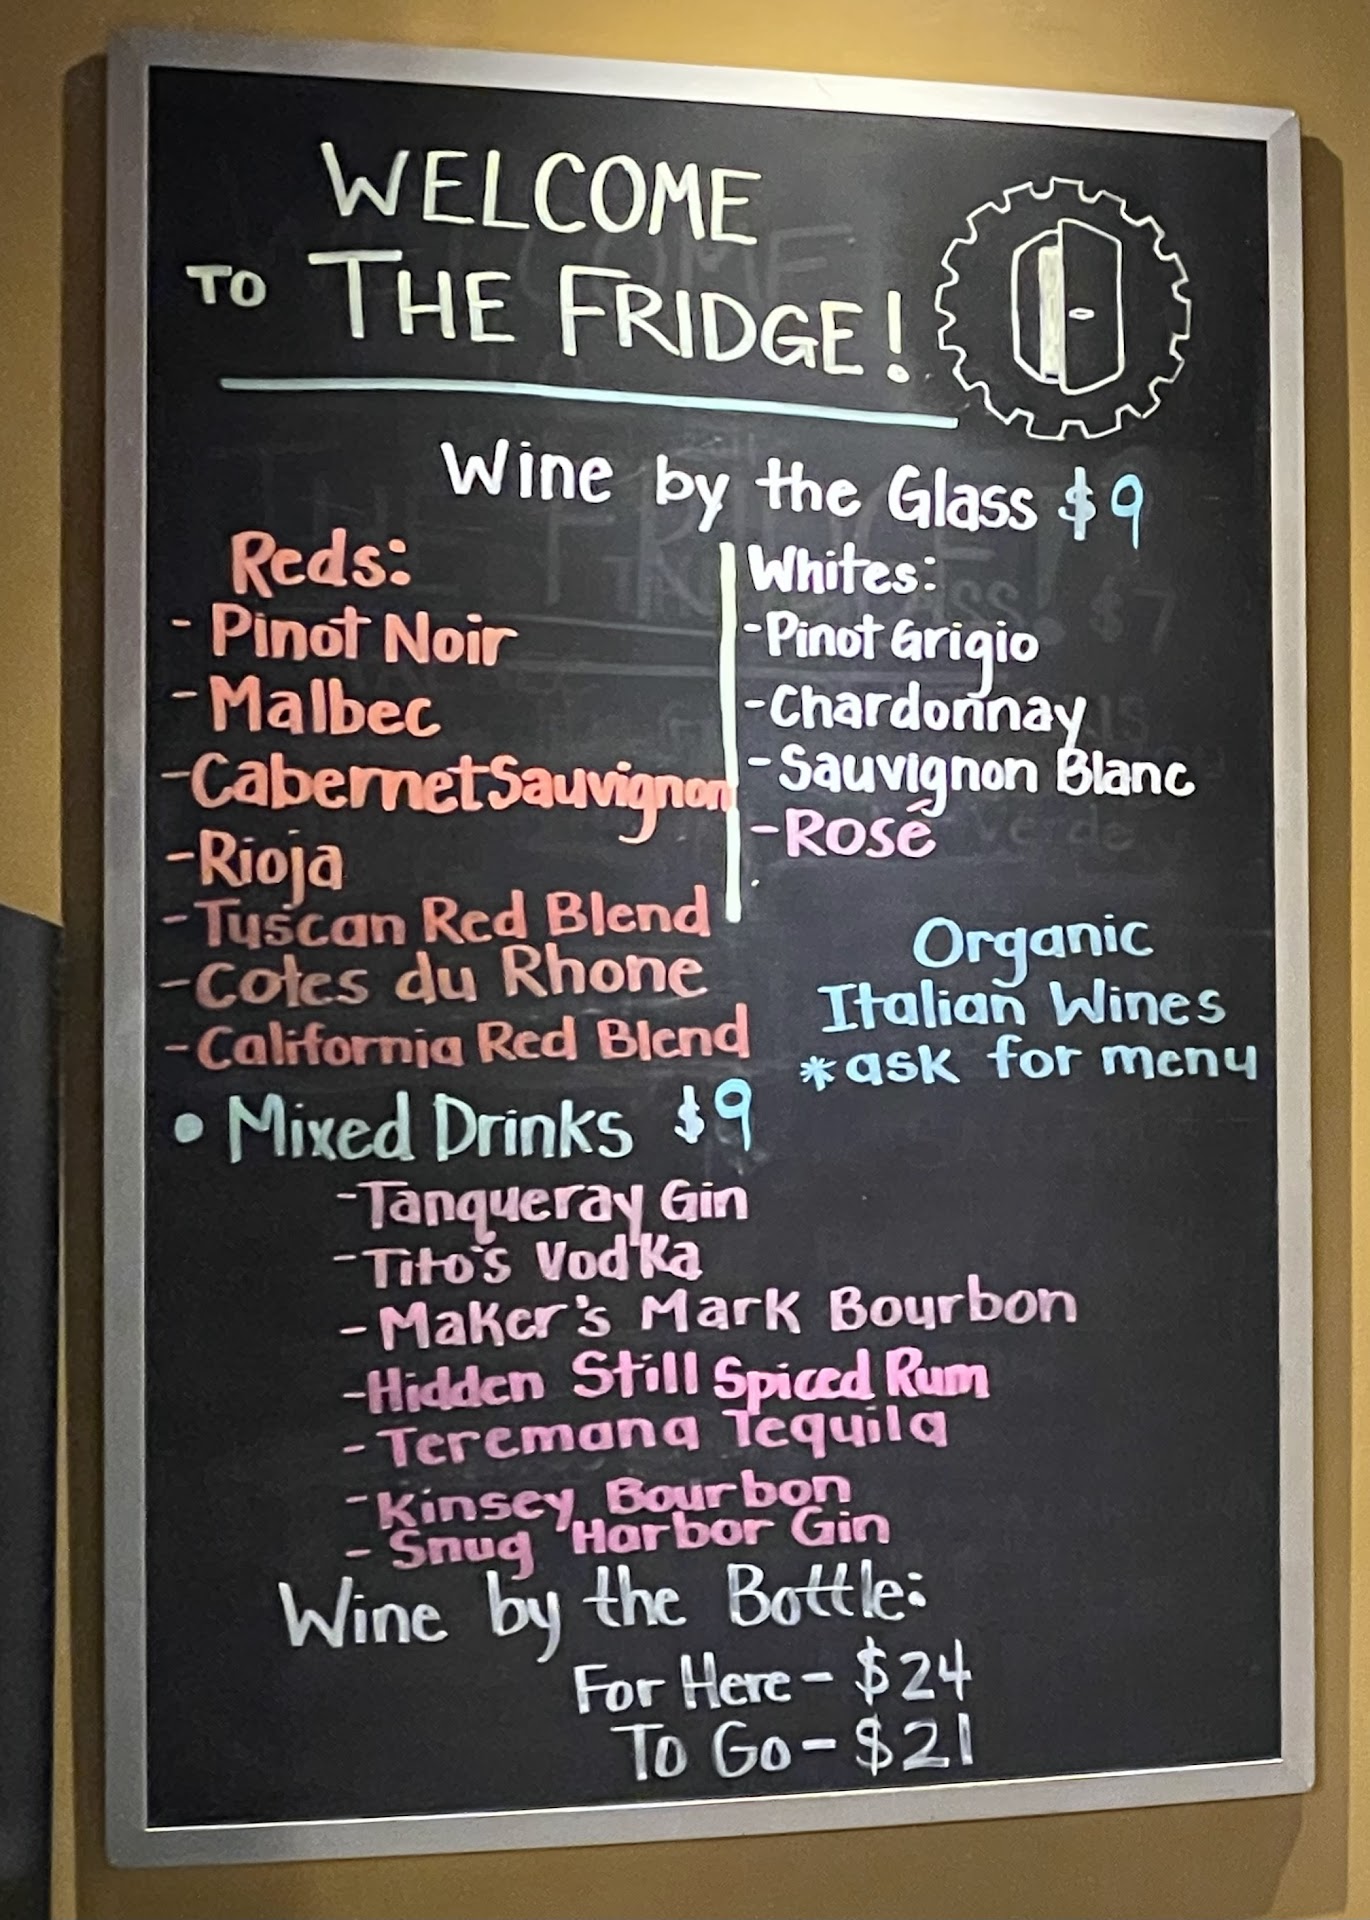 WELCOME
TO THE FRIDGE!
Wine by the Glass $9
Reds:
- Pinot Noir
- Malbec
- Cabernet Sauvignon
- Rioja
- Tuscan Red Blend
- Cotes du Rhone
- California Red Blend
Whites:
- Pinot Grigio
- Chardonnay
- Sauvignon Blanc
- Rosé
Organic
Italian Wines
*ask for menu
• Mixed Drinks $9
- Tanqueray Gin
- Tito's Vodka
- Maker's Mark Bourbon
- Hidden Still Spiced Rum
- Teremana Tequila
- Kinsey Bourbon
- Snug Harbor Gin
Wine by the Bottle:
For Here - $24
To Go - $21